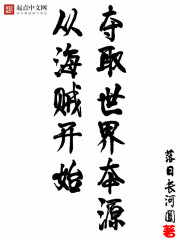 起点中文网
从海贼开始
夺取世界本源
落日长河圆 著